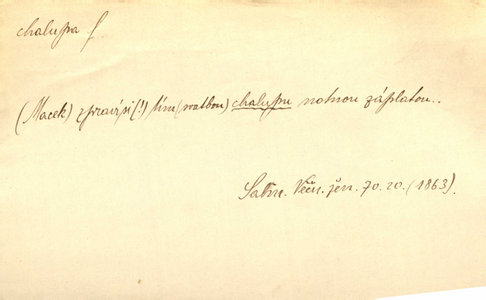 chalupa f
(Macek) zpraví si (!) tím (svatbou) chalupu notnou záplatou..
Sabin. Věčn. žen. 70. 20. (1863).